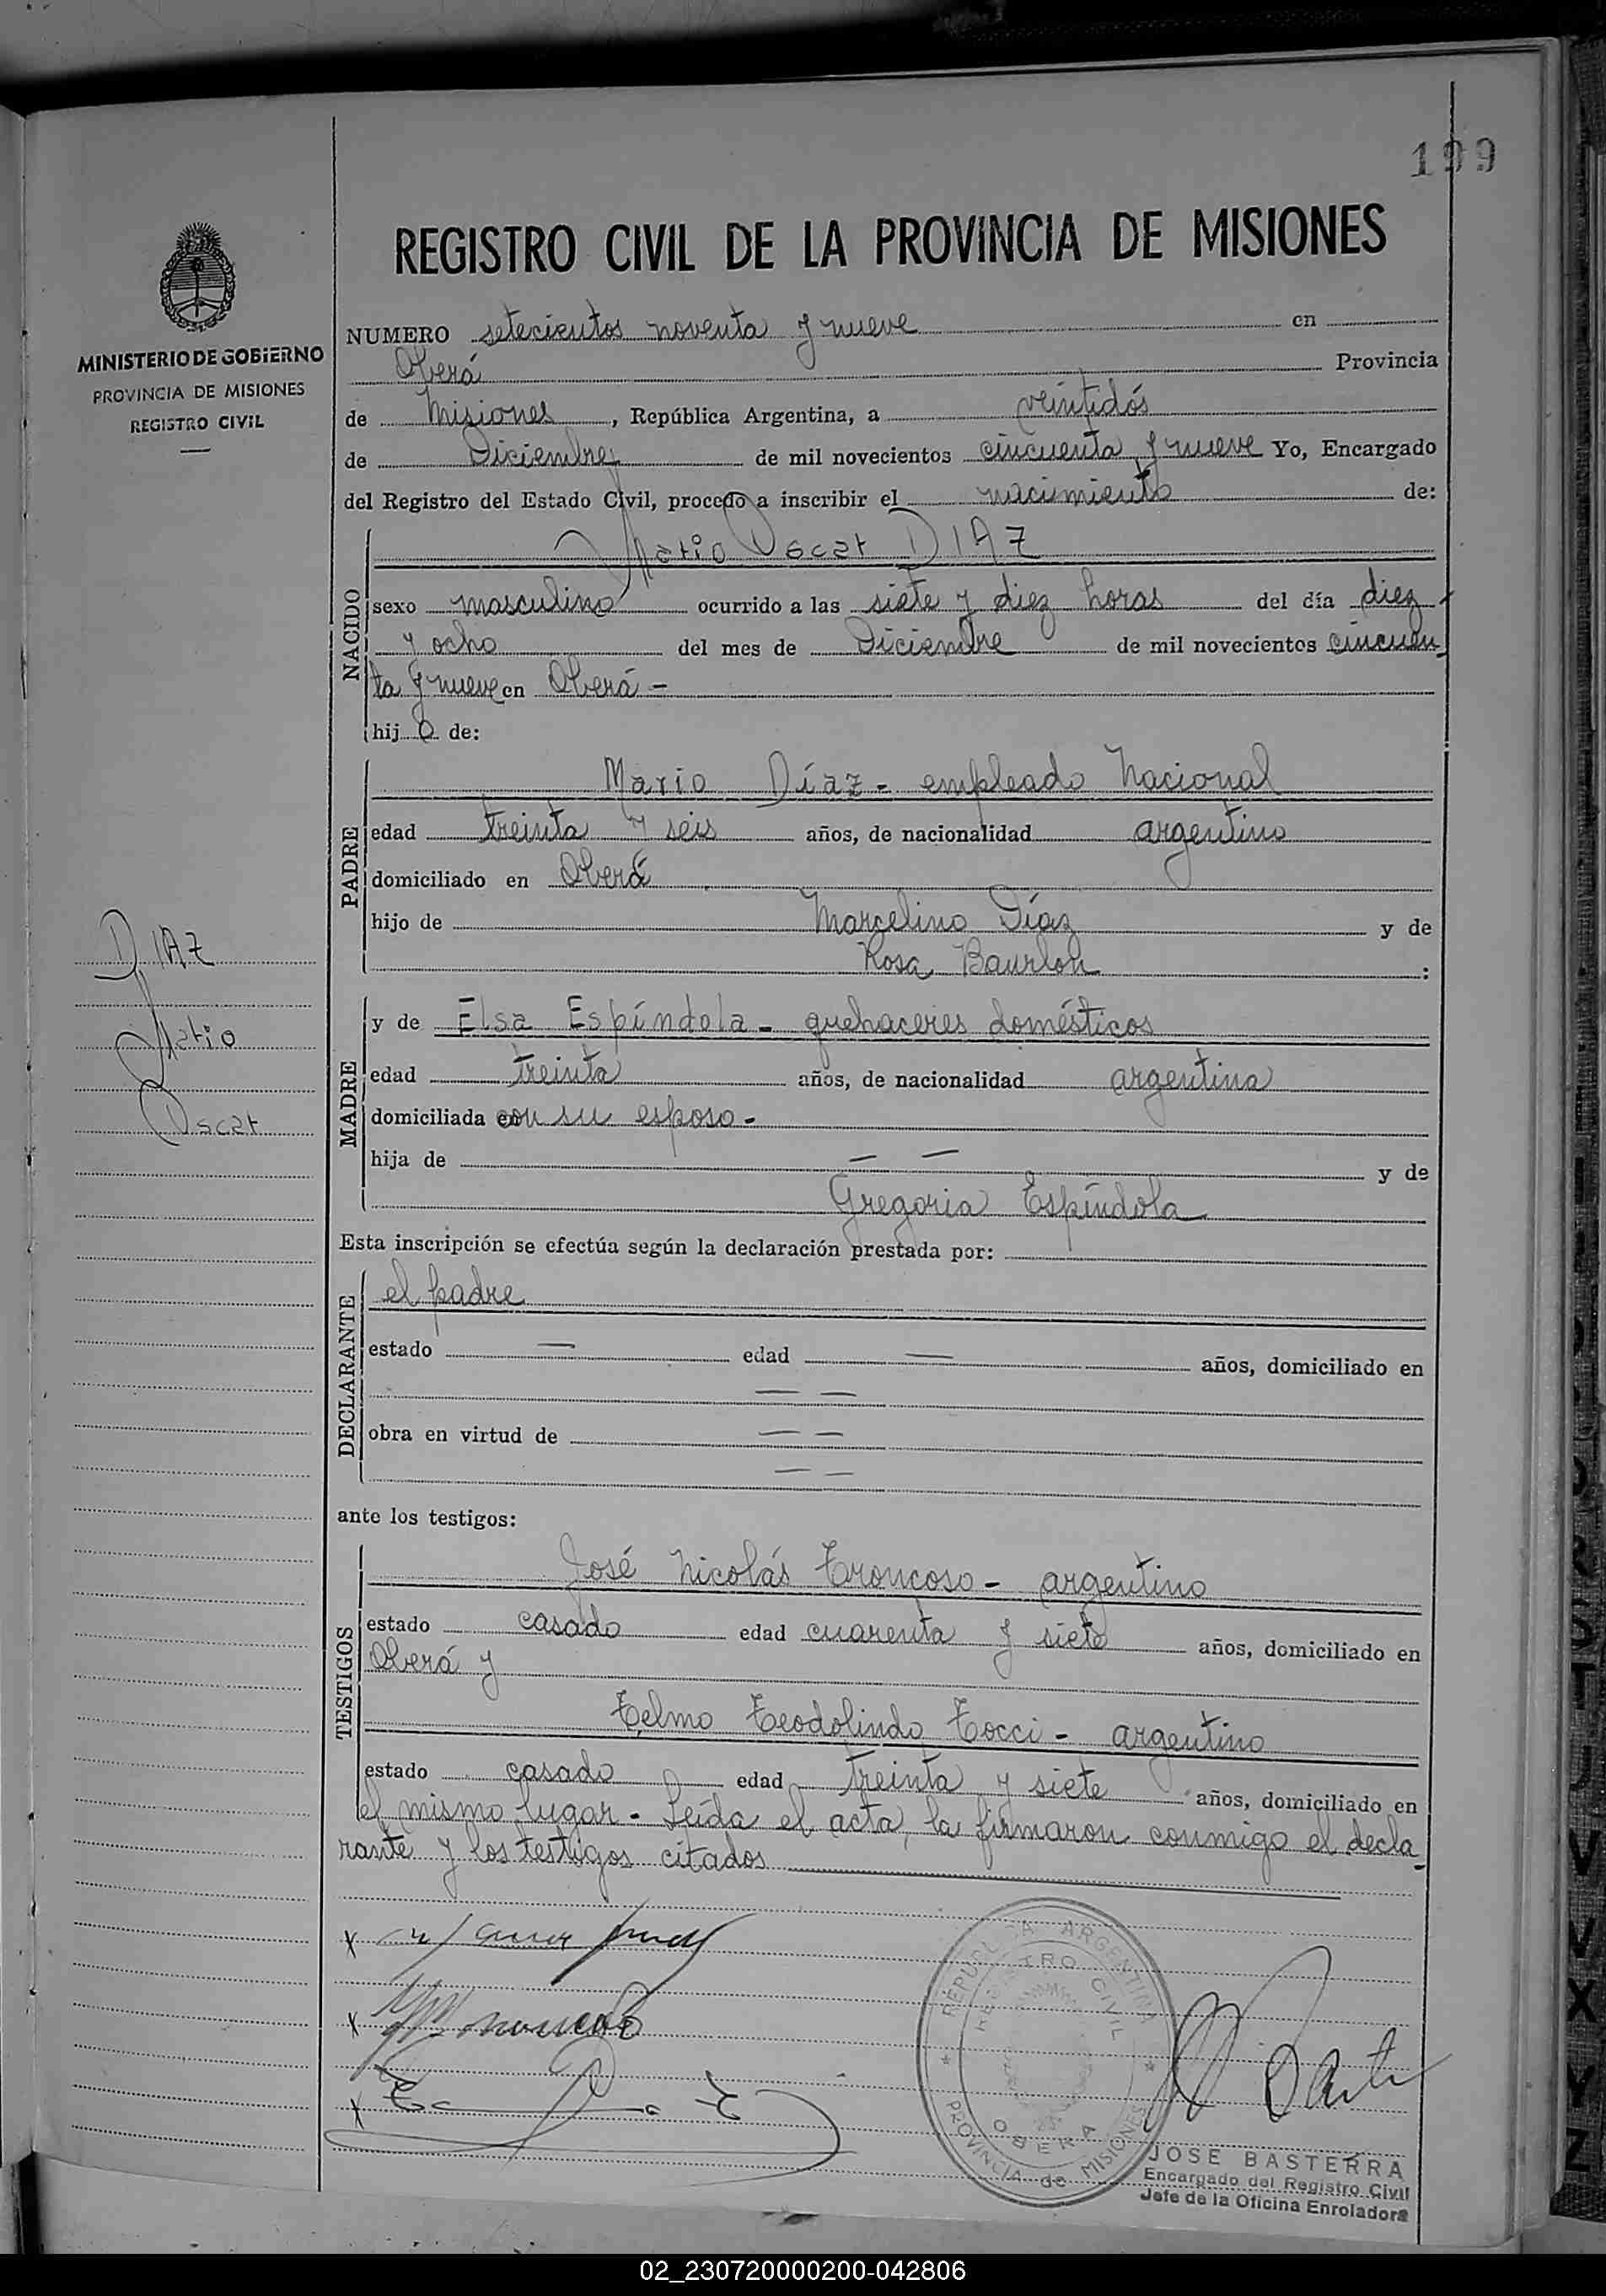 199
REGISTRO CIVIL DE LA PROVINCIA DE MISIONES
MINISTERIO DE GOBIERNO
PROVINCIA DE MISIONES
REGISTRO CIVIL
NUMERO setecientos noventa y nueve en
Oberá Provincia
de Misiones, República Argentina, a veintidós
de Diciembre de mil novecientos cincuenta y nueve Yo, Encargado
del Registro del Estado Civil, procedo a inscribir el nacimiento de:
NACIDO
Mario Oscar DIAZ
sexo masculino ocurrido a las siete y diez horas del día diez
y ocho del mes de Diciembre de mil novecientos cincuen
ta y nueve en Oberá -
hij o de:
PADRE
Mario Díaz - empleado Nacional
edad treinta y seis años, de nacionalidad argentino
domiciliado en Oberá
hijo de Marcelino Díaz y de
Rosa :
DIAZ
Mario
Oscar
MADRE
y de Elsa Espíndola - quehaceres domésticos
edad treinta años, de nacionalidad argentina
domiciliada con su esposo -
hija de — — y de
Gregoria Espíndola
Esta inscripción se efectúa según la declaración prestada por:
DECLARANTE
el padre
estado — edad — años, domiciliado en
— —
obra en virtud de — —
— —
ante los testigos:
TESTIGOS
José Nicolás Troncoso - argentino
estado casado edad cuarenta y siete años, domiciliado en
Oberá y
Telmo Teodolindo Tocci - argentino
estado casado edad treinta y siete años, domiciliado en
el mismo lugar - Leída el acta, la firmaron conmigo el decla
rante y los testigos citados
REPUBLICA ARGENTINA
REGISTRO CIVIL
OBERA
PROVINCIA de MISIONES
JOSE BASTERRA
Encargado del Registro Civil
Jefe de la Oficina Enroladora
02_230720000200-042806